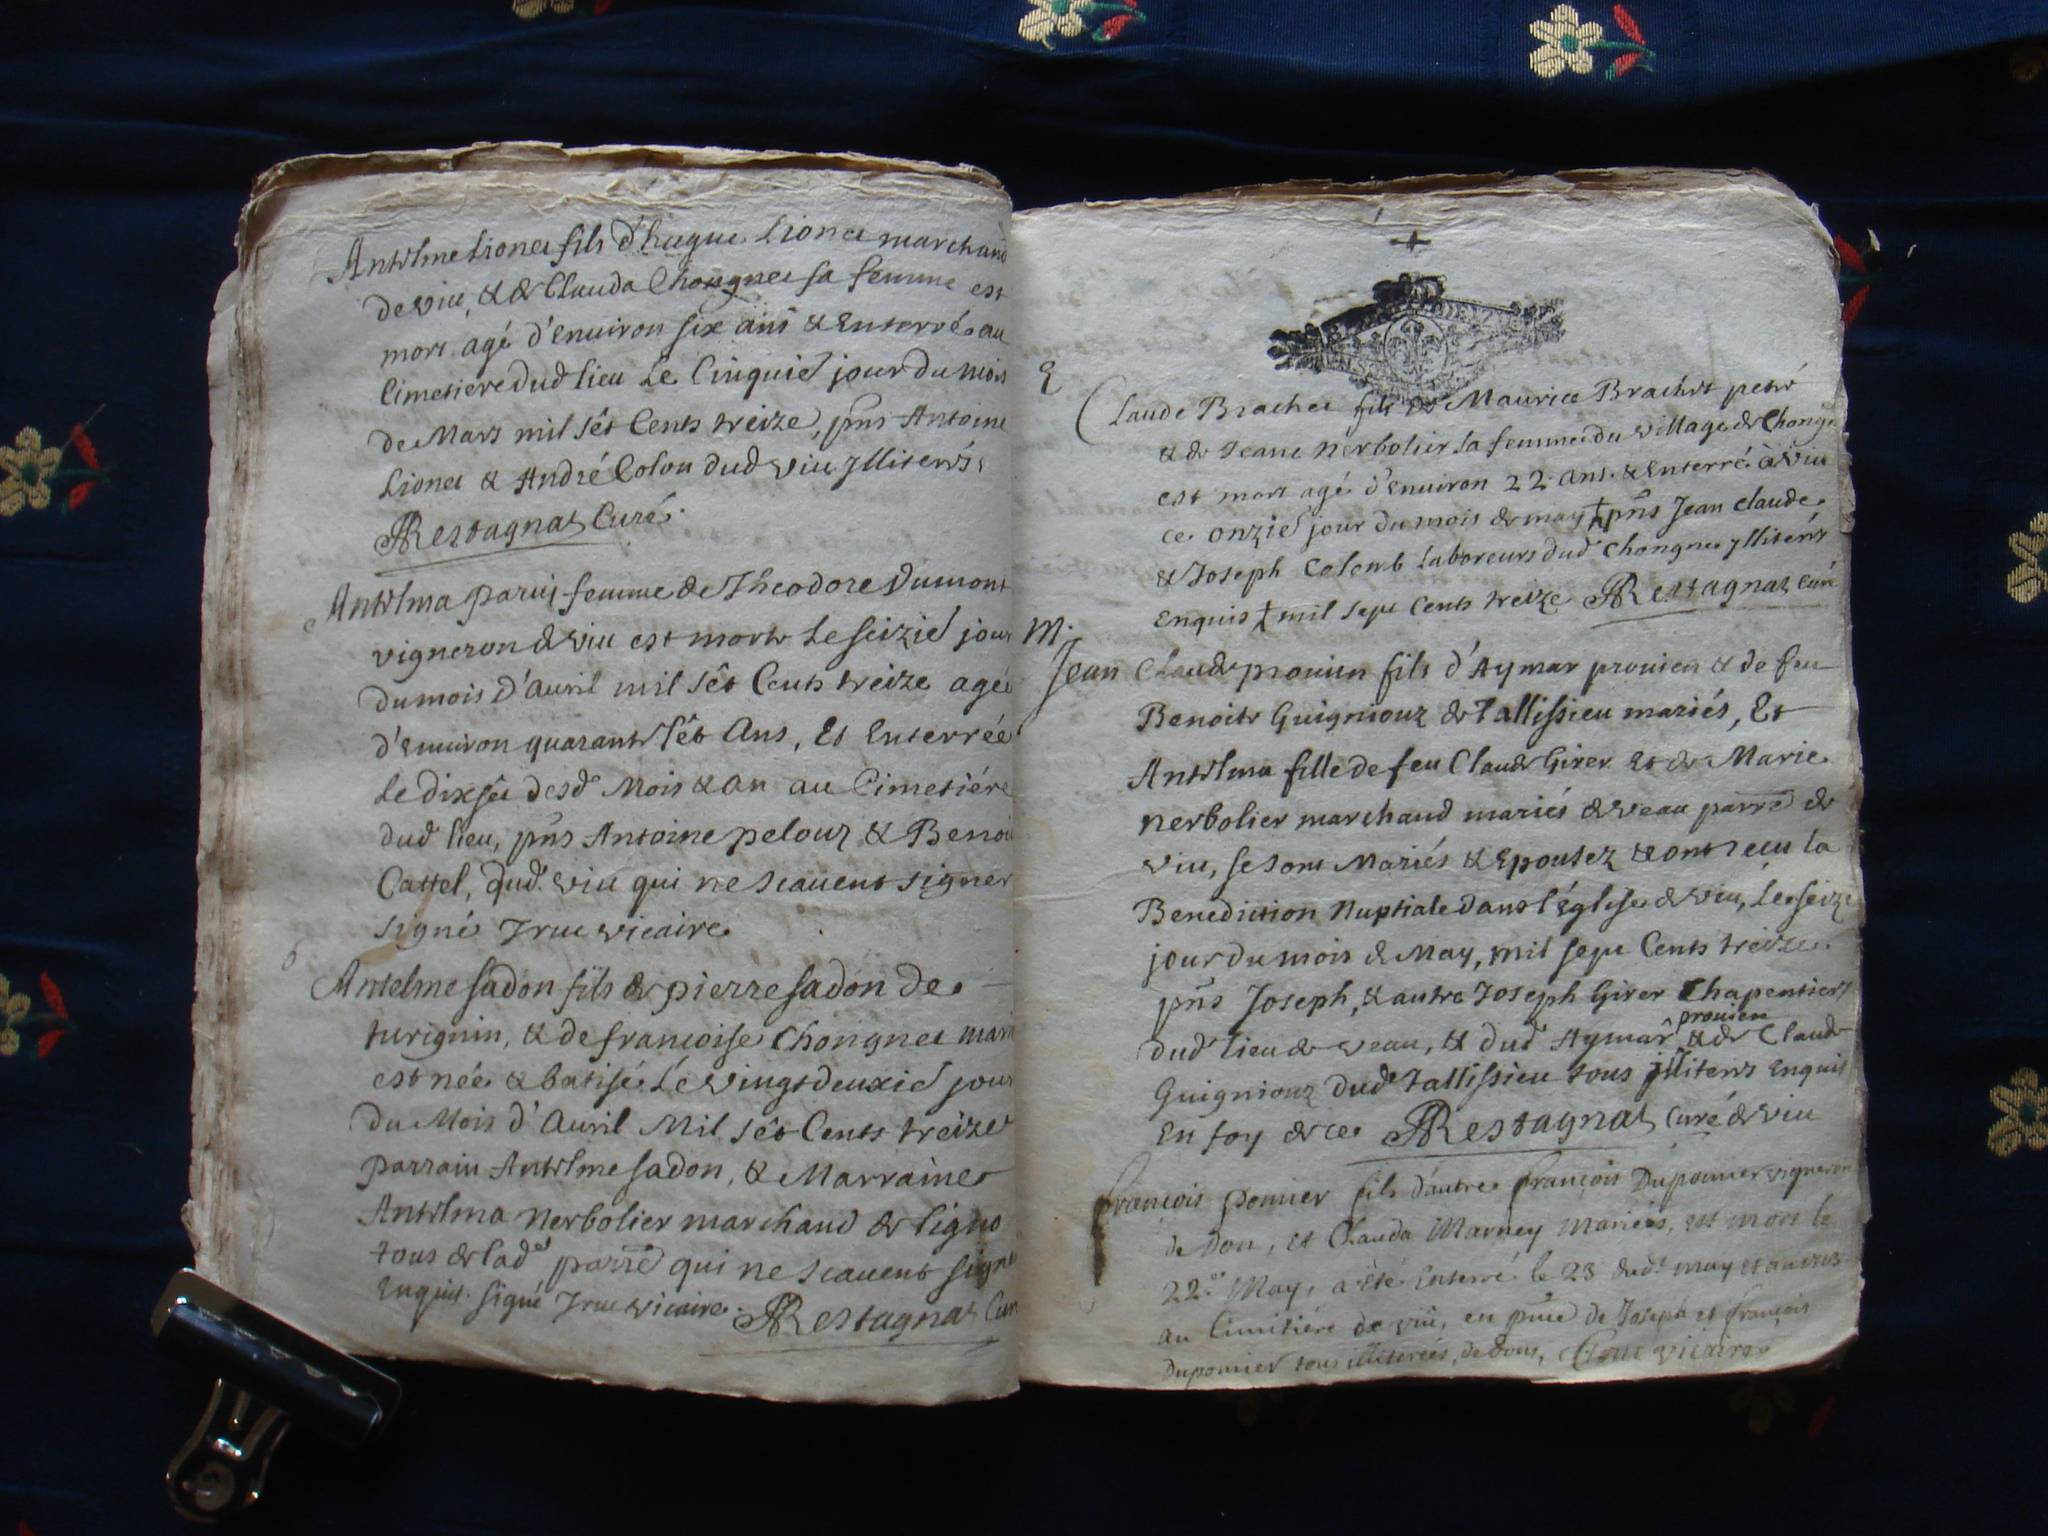 Antelme Lionet fils d'hugue Lionet marchand
de viu, & de Clauda Chongnet sa femme est
mort agé d'enuiron six ans & Enterré au
Cimetiere dud lieu Le Cinquie jour du mois
de Mars mil sêt Cents treize, pns Antoine
Lionet & André Colon dud viu ylliterés
Restagnat Curé.
Antelma paruy femme de Theodore Dumont
vigneron de viu est morte Le seizie jour
du mois d'auril mil sêt Cents treize agée
d'enuiron quarante sêt Ans, Et Enterrée
Le dixsêt desd Mois & an au Cimetiére
dud lieu, pns Antoine pelouz & Benoi
Cattel, dud. viu qui ne scauent signer
signé Truc vicaire
6
Antelme sadon fils de pierre sadon de
turignin, & de francoise Chongnet mari
est née & batisé Le vingt deuxie jour
du Mois d'auril Mil sêt Cents treize
parrain Antelme sadon, & Marraine
Antelma nerbolier marchand de ligno
tous de lad parre qui ne scauent signe
Enquis. signé Truc vicaire. Restagnat Cur
E
Claude Brachet fils de Maurice Brachet petré
& de Jeane nerbolier sa femme du village de Chong
est mort agé d'enuiron 22 ans. & Enterré à viu
ce onzie jour du mois de may + pns Jean claude
& Joseph Colomb Laboreurs dud chongnet ylliterés
Enquis + mil sept Cents treize Restagnat Curé
M.
Jean Claude prouien fils d'Aymar prouien & de feu
Benoite Guigniouz de Tallissieu mariés, Et
Antelma fille de feu Claude Girer Et de Marie
nerbolier marchand mariés de veau parre de
viu, se sont Mariés & Epousez & ont recu la
Benediction Nuptiale dans l'église de viu, Le seize
jour du mois de May, mil sept Cents treize
pns Joseph, & autre Joseph Girer Chapentiers
prouien
dud lieu de veau, & dud Aymar & de Claude
Guigniouz dud Tallissieu tous jlliterés Enquis
En foy de ce Restagnat Curé de viu
françois pomier fils d'autre françois Dupomier vigneron
de Don, et Clauda Marney mariés, est mort le
22e May, a été Enterré le 23 dud. may et an
au Cimitiére de viû, en pnce de Joseph et françois
dupomier tous illiterées, de Dons, vicaire